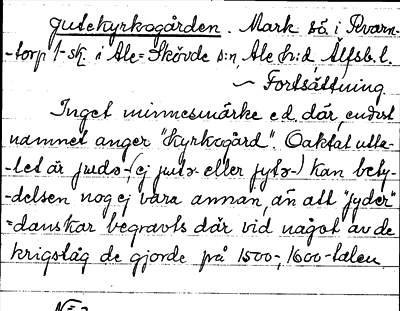 Jutekyrkogården. Markså i Kvarn-
-torp 1-sk. i Ale=Skövde s:n, Ale h:d, Älfsb. l.
~ Fortsättning
Inget minnesmärke e.d. där, endast
namnet anger "Kyrkogård". Oaktat utta-
-let är juds- (ej juts- eller jyts-) kan bety-
-delsen nog ej vara annan, än att "jyder"
=danskar begravts där vid något av de
krigståg de gjorde på 1500-, 1600-talen